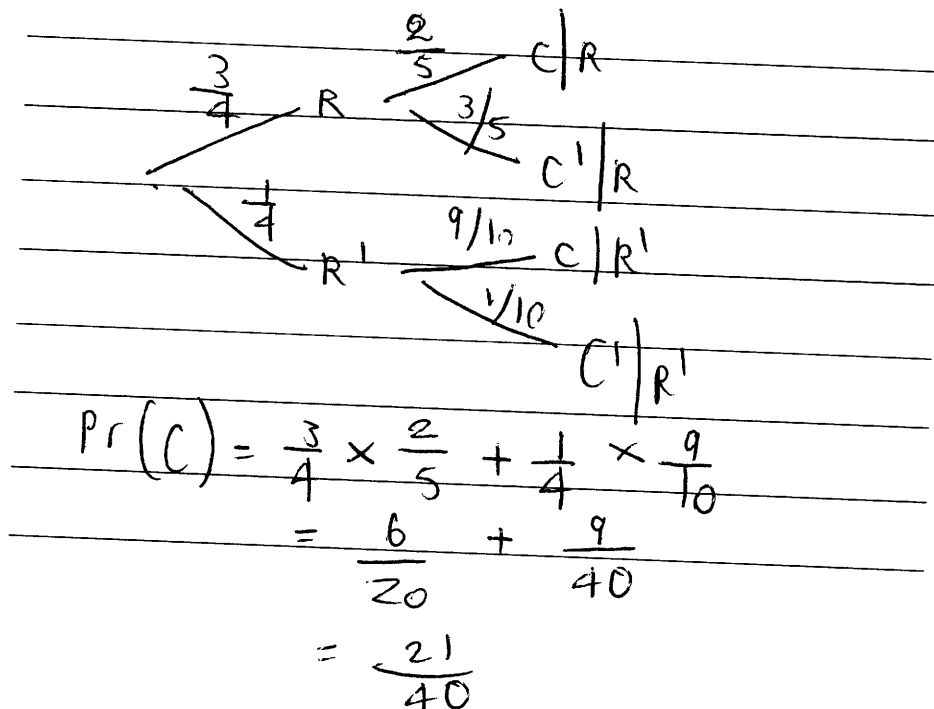 2/5 C|R
3/4 R 3/5
C'|R
1/4 9/10 C|R'
R' 1/10
C'|R'
Pr(C) = 3/4 × 2/5 + 1/4 × 9/10
= 6/20 + 9/40
= 21/40